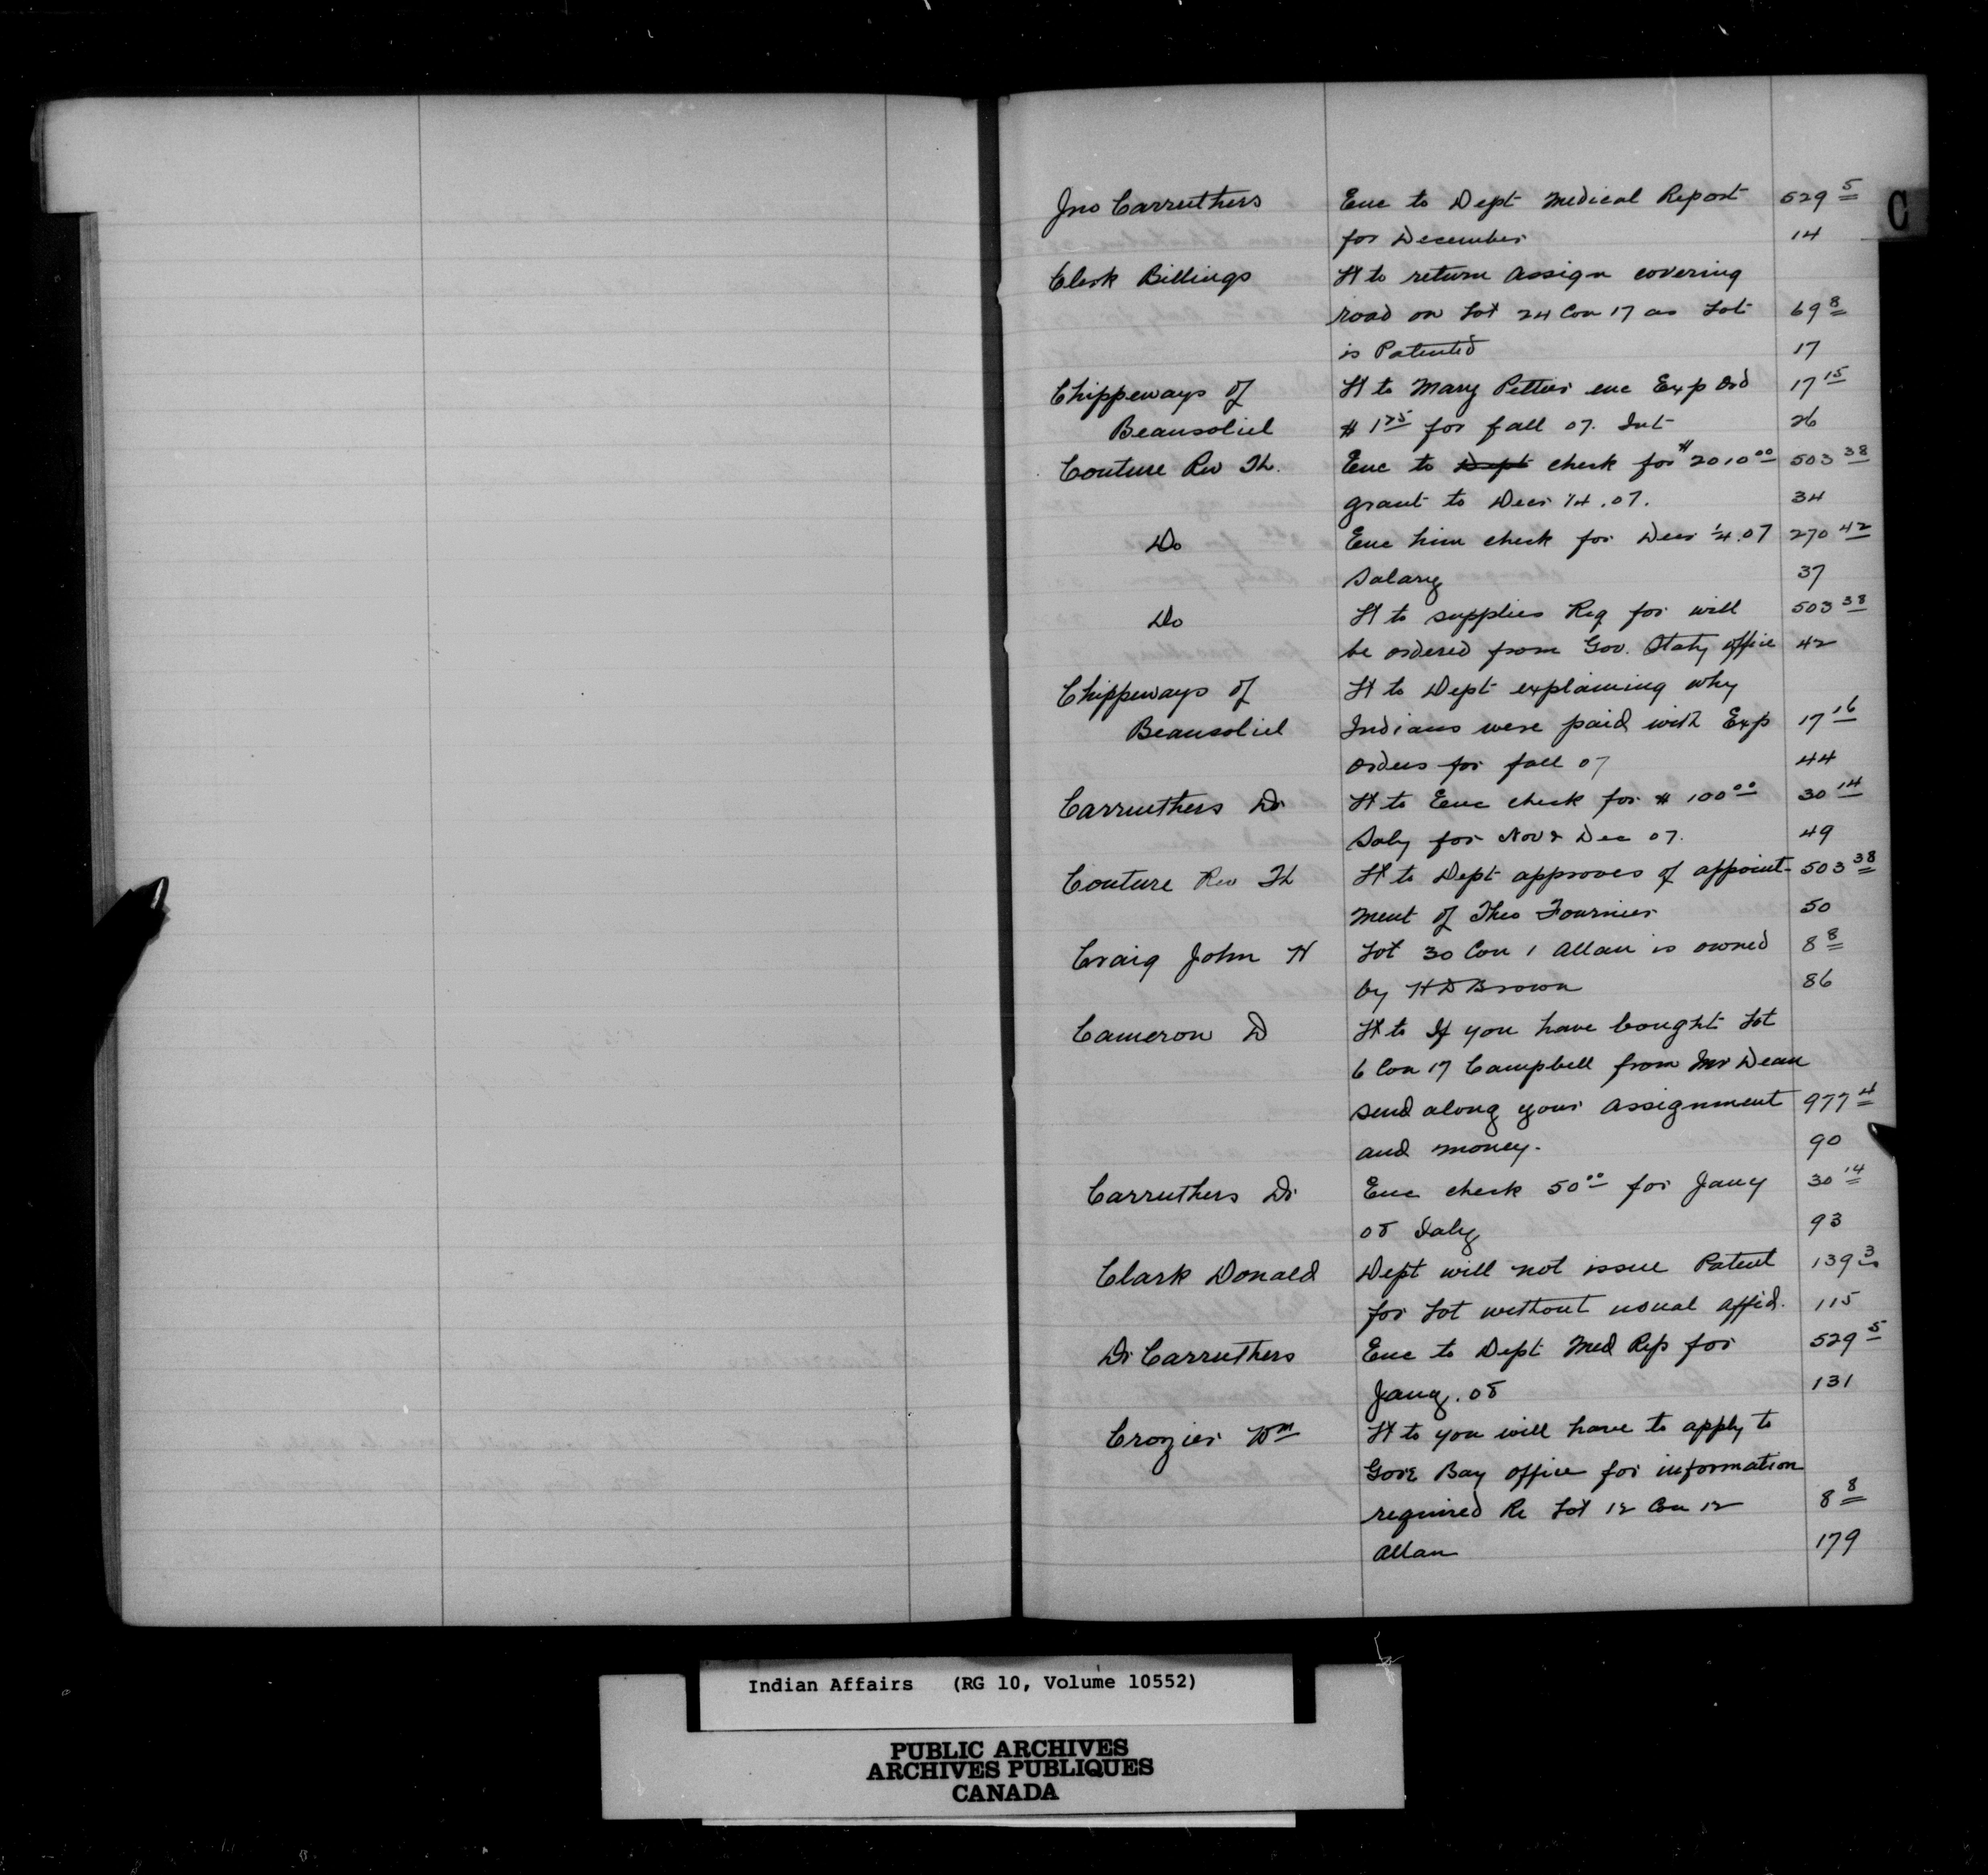 C
Jno Carruthers Enc to Dept Medical Report 529 5
for December 14
Clerk Billings Lt to return Assign covering
road on Lot 24 Con 17 as Lot 69 8
is Patented 17
Chippeways of Lt to Mary Pettier enc Exp Ord 17 15
Beausoliel $ 1 75 for fall 07. Int 26
Couture Rev Th. Enc to Dept check for $ 2010 00 503 38
grant to Decr 1/4.07. 34
Do Enc him check for Decr 1/4.07 270 42
Salary 37
Do Lt to supplies Req for will 503 38
be ordered from Gov. Staty office 42
Chippeways of Lt to Dept explaining why
Beausoliel Indians were paid with Exp 17 16
orders for fall 07 44
Carruthers Dr Lt to Enc check for $ 100 00 30 14
Saly for Nov & Dec 07. 49
Couture Rev Th Lt to Dept approves of appoint- 503 38
ment of Theo Fournier 50
Craig John H Lot 30 Con 1 Allan is owned 8 8
by H D Brown 86
Cameron D Lt to If you have bought Lot
6 Con 17 Campbell from Mr Dean
send along your Assignment 977 4
and money. 90
Carruthers Dr Enc check 50 00 for Jany 30 14
08 Saly 93
Clark Donald Dept will not issue Patent 139 3
for Lot without usual Affid. 115
Dr Carruthers Enc to Dept Med Rep for 529 5
Jany. 08 131
Crozier Wm Lt to you will have to apply to
Gore Bay office for information
required Re Lot 12 Con 12 8 8
Allan 179
Indian Affairs (RG 10, Volume 10552)
PUBLIC ARCHIVES
ARCHIVES PUBLIQUES
CANADA